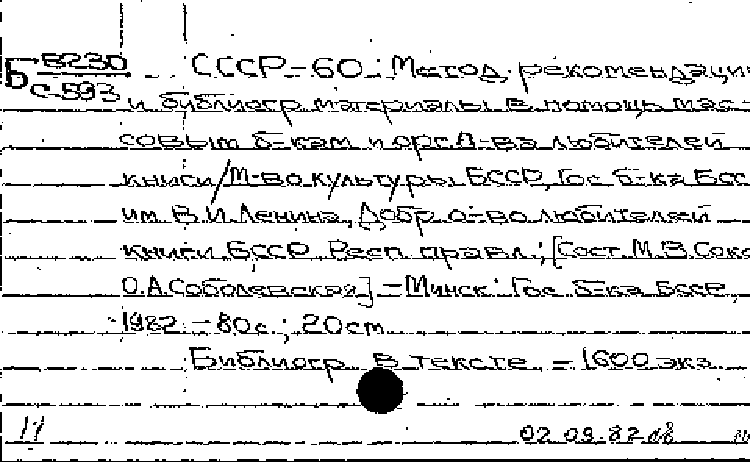 Б В230 СССР-60: Метод. рекомендаци
С-593 и библиогр. материалы в помощь мас-
совым б-кам и орг. Д-ва любителей
книги/М-во культуры БССР, Гос. б-ка БСС
им. В.И.Ленина, Добр. о-во любителей
книги БССР. Респ. правл.; [Сост. М.В.Соко
О.А.Соболевская] -Минск: Гос. б-ка БССР,
1982. -80с.; 20см
Библиогр. в тексте. - 1600 экз.
11
02.09.82